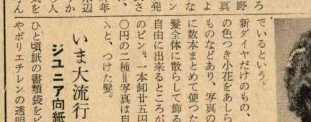 でいるという。
新ダイヤだけのもの、
の色つき小花をあしら
ものなどあり、写真の
に数本まとめて使つた
髪全体に散らして飾る
自由に出来るところが
のピン。一本卅五円
〇円の二種＝写真は自
へと、つけた髪。
いま大流行
ジユニア向紙
ひと頃紙の書類袋をど
やポリエチレンの透明